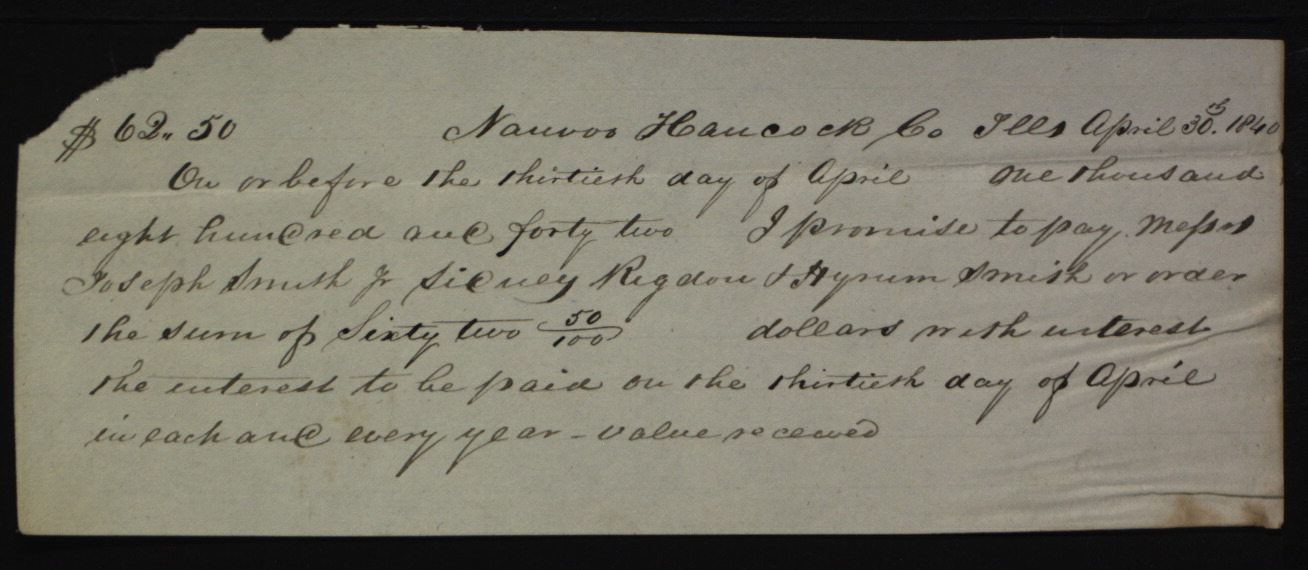 $ 62.. 50 Nauvoo Hancock Co Ills April 30th. 1840
On or before the thirtieth day of April one thousand
eight hundred and forty two I promise to pay Messrs
Joseph Smith Jr Sidney Rigdon & Hyrum Smith or order
the sum of Sixty two 50/100 dollars with interest
the interest to be paid on the thirtieth day of April
in each and every year - value received